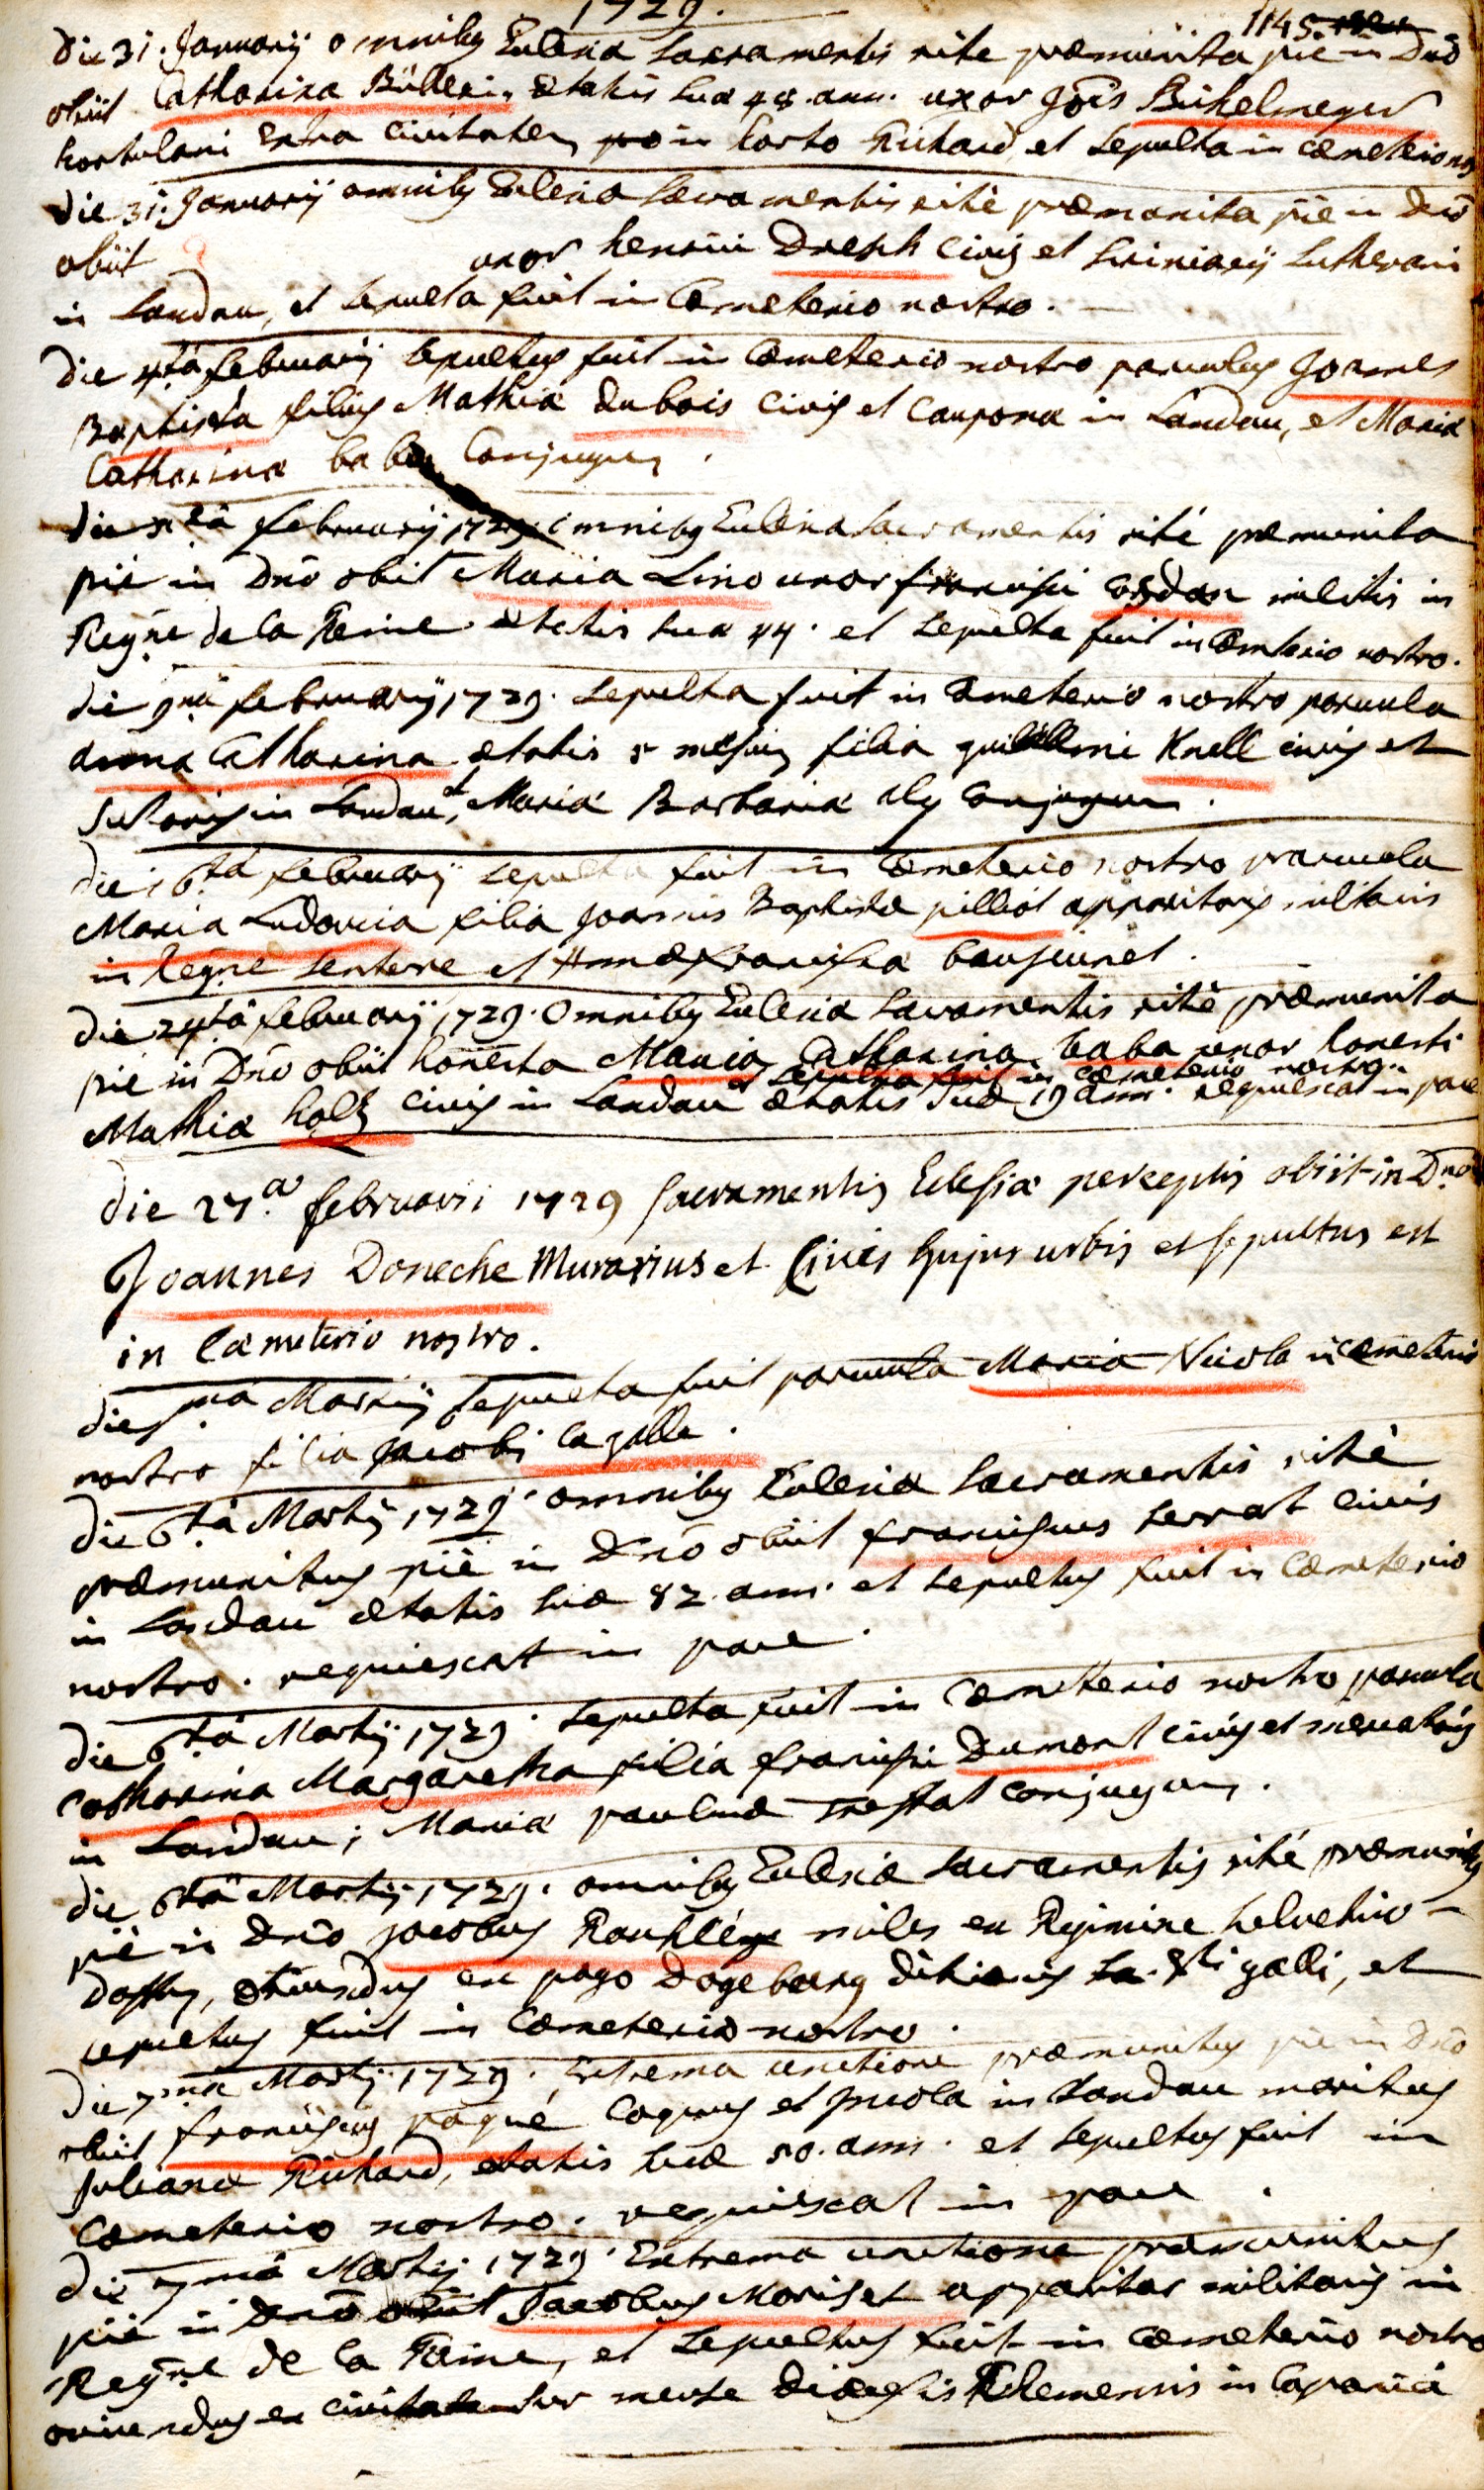 1729.
1145
Die 31. Januarij omnibus Eccleria sacramentis rite præmunita pie in Dnō
obiit Catharina Büllerin ætatis suæ 48 ann. uxor Jōis Bihelmeyer
hortulani extra civitatem in horto Richard, et sepulta in cœmeterio
Die 31. Januarij omnibus Ecclesia sacramentis ritè præmonita pie in dnō
obiit uxor henrici Dresch civis et scriniarij lutherani
in Landau, et sepulta fuit in Cœmeterio nostro.
Die 4ta februarij sepultus fuit in Cœmeterio nostro parvulus Joannes
Baptista filius Mathiæ dubois civis et Cauponæ in Landau, et Mariæ
Catharinæ baba Conjugum.
die februarij 1729 omnibus Ecclesia sacramentis rité præmunita
pié in Dnō obiit Maria Lino uxor francisci militis in
Regne de la Reine ætatis suæ 44. et sepulta fuit in Cœmterio nostro.
die 9na februarij 1729. sepulta fuit in Cœmeterio nostro parvula
anna Catharina ætatis 5 mensium filia guillelmi Knell civis et
Sutoris in Landau, et Mariæ Barbaræ Conjugum.
die 16ta februarij sepulta fuit in Cœmeterio nostro parvula
Maria Ludovica filia Joannis Baptistæ pilliot apparitoris militaris
in Regne senterre et Annæ francisca
die 24ta februarij 1729. Omnibus Ecclesia sacramentis ritè præmunita
pie in Dnō obiit honesta Maria Catharina baba uxor honesti
et sepulta fuit in cœmeterio nostro.
Mathiæ holtz civis in Landau ætatis suæ 19 ann. requiescat in pace
Die 27.a februarii 1729 sacramentis Eclesiæ perceptis obiit in Dno
Joannes Doneche Murarius et Civis hujus urbis et sepultus est
in Cœmeterio nostro.
die Martij sepulta fuit parvula Maria Nicola in cœmeterio
nostro filia Jacobi Lagalle.
die 6ta Martij 1729. omnibus Ecclesia sacramentis ritè
præmunitus pie in Dnō obiit franciscus serrat civis
in Landau ætatis suæ 82 ann. et sepultus fuit in Cœmeterio
nostro. requiescat in pace.
Die 6ta Martij 1729. sepulta fuit in Cœmeterio nostro parvula
Catharina Margaretha filia francisci Dumont civis et mercatoris
in Landau; Mariæ paulinæ conjugum.
die 6ta Martij 1729. omnibus Ecclesiæ sacramentis rité præmunitus
pie in Dnō Jacobus miles ex Regimine helvetico
oriundus ex pago Dogeburg ditionis Sti galli, et
sepultus fuit in Cœmeterio nostro.
Die 7ma Martij 1729. Extrema unctione præmunitus pie in Dnō
obiit franciscus paqué Coquus et incola in Landau maritus
Julianæ Richard, ætatis suæ 50. ann. et sepultus fuit in
Cœmeterio nostro. requiescat in pace.
Die 7ma Martij 1729. Extrema unctione præmunitus
pié in Dnō obiit Jacobus Moriset apparitor militaris in
Regne de la Reine, et sepultus fuit in cœmeterio nostro
oriundus ex civitate sur meuse diœcesis Rhemensis in Campania